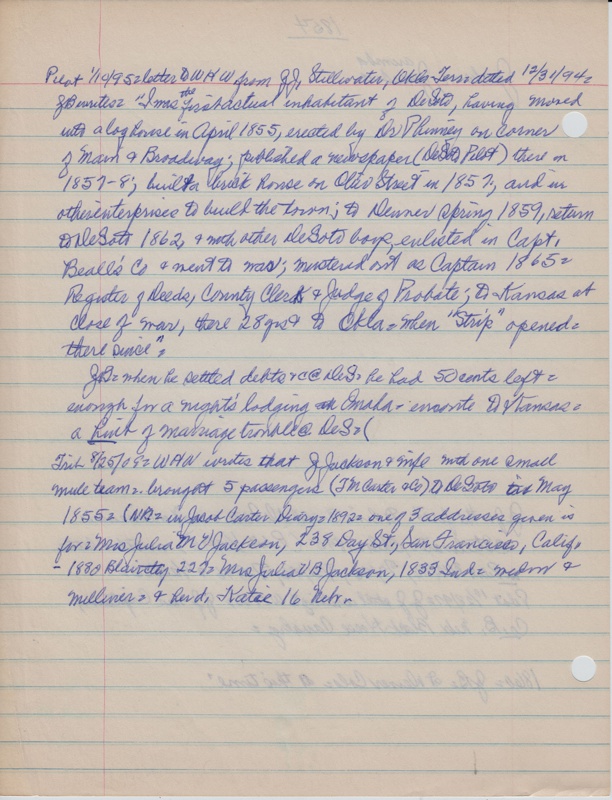 Pilot 1/10/95 = letter to WHW from JJ, Stillwater, Okla-Terr = dated 12/31/94 =
JB writes = "I was the first actual inhabitant of DeSoto, having moved
into a log house in April 1855, erected by Dr Phinney on corner
of Main & Broadway; published a newspaper (DeSoto Pilot) there in
1857-8; built a brick house on Olive Street in 1857; and in
other enterprises to build the town; to Denver spring 1859, return
to DeSoto 1862, & with other DeSoto boys, enlisted in Capt.
Beall's Co & went to war; mustered out as Captain 1865 =
Register of Deeds, County Clerk & Judge of Probate; to Kansas at
close of war, there 28 yrs & to Okla = when "Strip" opened =
there since" =
JB = when he settled debts &c @ DeS = he had 50 cents left =
enough for a night's lodging Omaha - enroute to Kansas =
a hint of marriage trouble @ DeS = (
Trib 8/25/05 = WHW writes that J Jackson & wife with one small
mule team = brought 5 passengers (JM Carter & Co) to DeSoto May
1855 = (NB = in Jacob Carter Diary = 1892 = one of 3 addresses given is
for = Mrs Julia Jackson, 238 Day St., San Francisco, Calif.
- 1880 Blair 227 = Mrs Julia B Jackson, 1833 Ind = widow &
milliner = & Katie 16 Nebr.